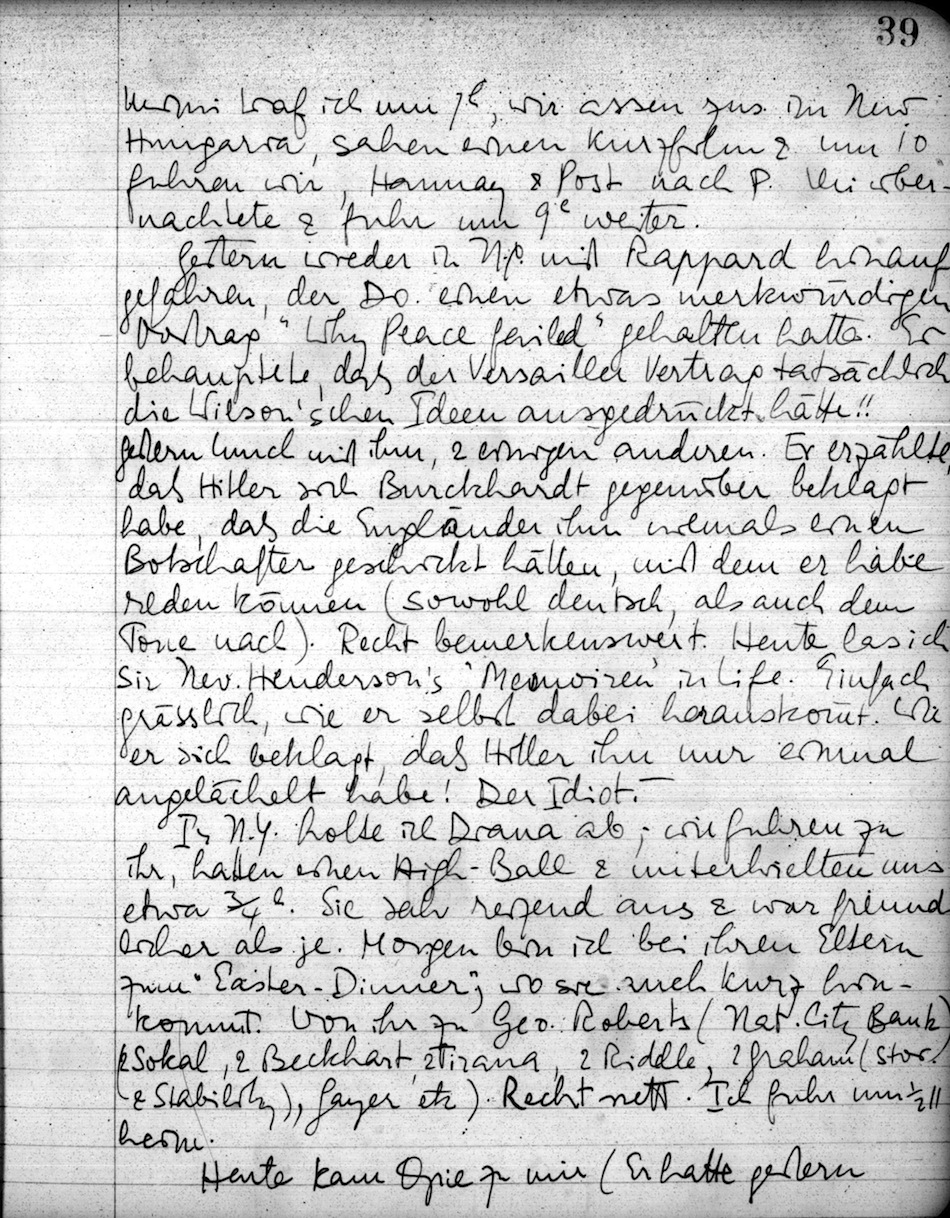 39
traf ich um 7h, wir assen zus. im New
Hungaria, sahen einen Kurzfilm & um 10
fuhren wir, Hannay & Post nach P. über-
nachtete & fuhr um 9e weiter.
Gestern wieder in N.Y. mit Rappard hinauf
gefahren, der Do. einen etwas merkwürdigen
Vortrag "Why Peace failed" gehalten hatte. Er
behauptete, daß der Versailler Vertrag tatsächlich
die Wilson'schen Ideen ausgedrückt hätte!!
gestern lunch mit ihm, & einigen anderen. Er erzählte
daß Hitler sich Burckhardt gegenüber beklagt
habe, daß die Engländer ihm niemals einen
Botschafter geschickt hätten, mit dem er habe
reden können (sowohl deutsch, als auch dem
Tone nach). Recht bemerkenswert. Heute las ich
Sir Nev. Henderson's "Memoiren" in Life. Einfach
grässlich, wie er selbst dabei herauskommt. Wie
er sich beklagt, daß Hitler ihn nur einmal
angelächelt habe! Der Idiot.
In N.Y. holte ich Diana ab; wir fuhren zu
ihr, hatten einen High-Ball & unterhielten uns
etwa 3/4 h. Sie sah reizend aus & war freund
licher als je. Morgen bin ich bei ihren Eltern
zum "Easter-Dinner", wo sie auch kurz hin-
kommt. Von ihr zu Geo. Roberts (Nat. City Bank
& Sokal, & Beckhart, & Tirana, & Riddle, & Graham (Stor.
& Stability), Gayer etc). Recht nett. Ich fuhr um 1/2 11
heim.
Heute kam Opie zu mir (Er hatte gestern